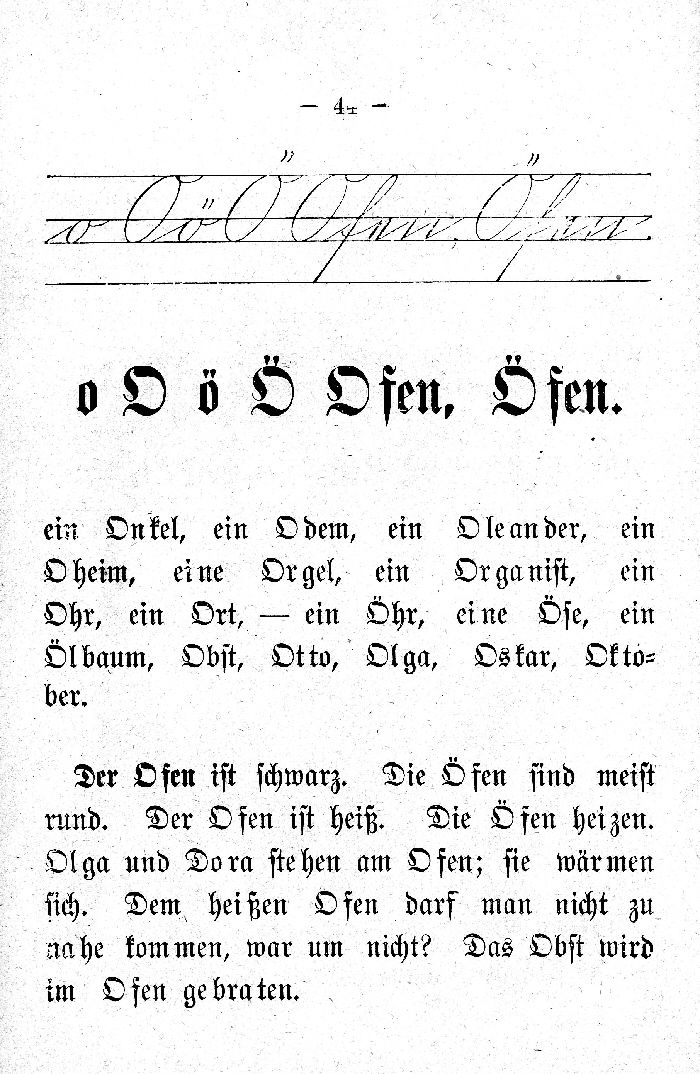 o O ö Ö Ofen, Öfen.
o O ö Ö Ofen, Öfen.
ein Onkel, ein Odem, ein Oleander, ein
Oheim, eine Orgel, ein Organist, ein
Ohr, ein Ort, — ein Öhr, eine Öse, ein
Ölbaum, Obst, Otto, Olga, Oskar, Okto-
ber.
Der Ofen ist schwarz. Die Öfen sind meist
rund. Der Ofen ist heiß. Die Öfen heizen.
Olga und Dora stehen am Ofen; sie wärmen
sich. Dem heißen Ofen darf man nicht zu
nahe kommen, war um nicht? Das Obst wird
im Ofen gebraten.